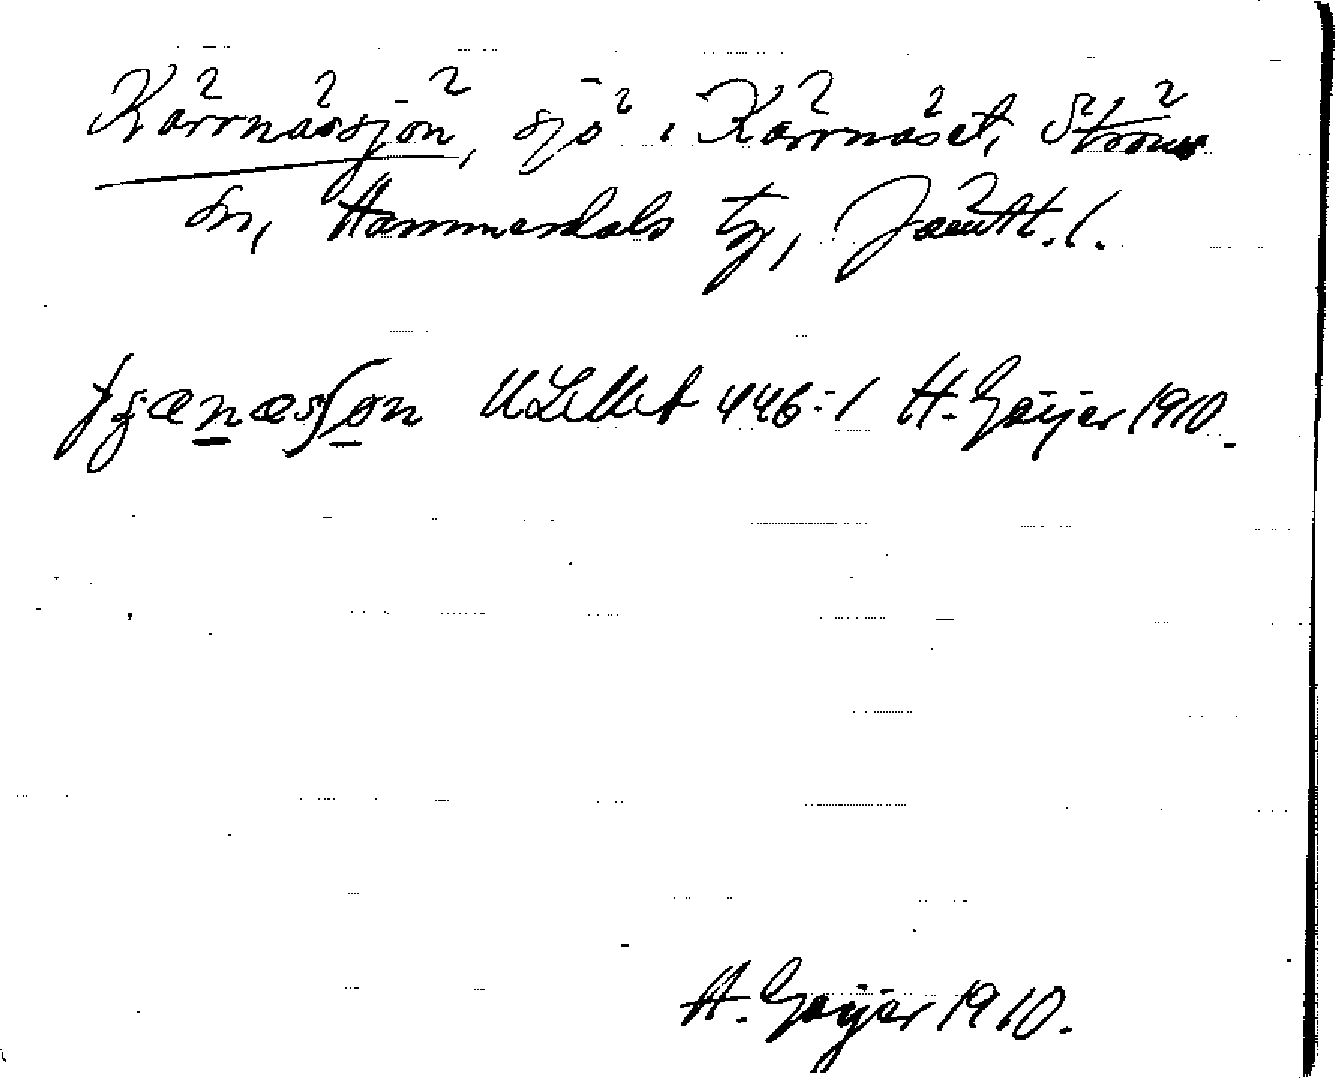 Kärrnässjön, sjö i Kärrnäset, Ströms
sn, Hammerdals tg, Jämtl. l.
ULMA 446:1 H. Geijer 1910.
H. Geijer 1910.